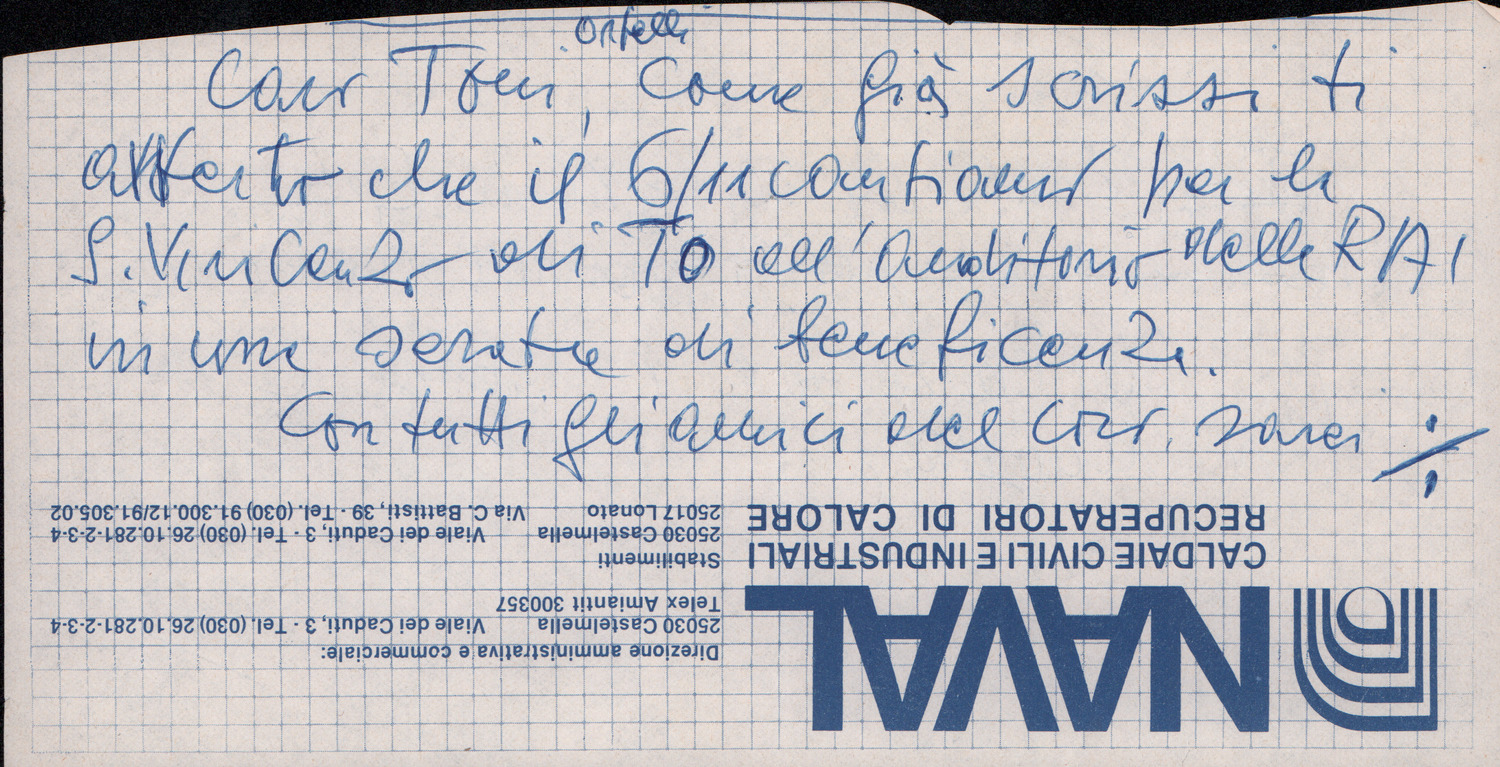 Ortelli
Caro Toni, come già scrissi ti
aspetto che il 6/11 cantiamo per la
S. Vincenzo di TO all'auditorio della RAI
in una serata di beneficenza.
Con tutti gli amici del coro, sarei ·/.
NAVAL
CALDAIE CIVILI E INDUSTRIALI
RECUPERATORI DI CALORE
Direzione amministrativa e commerciale:
25030 Castelmella Viale dei Caduti, 3 - Tel. (030) 26.10.281-2-3-4
Telex Amiantit 300357
Stabilimenti
25030 Castelmella Viale dei Caduti, 3 - Tel. (030) 26.10.281-2-3-4
25017 Lonato Via C. Battisti, 39 - Tel. (030) 91.300.12/91.305.02